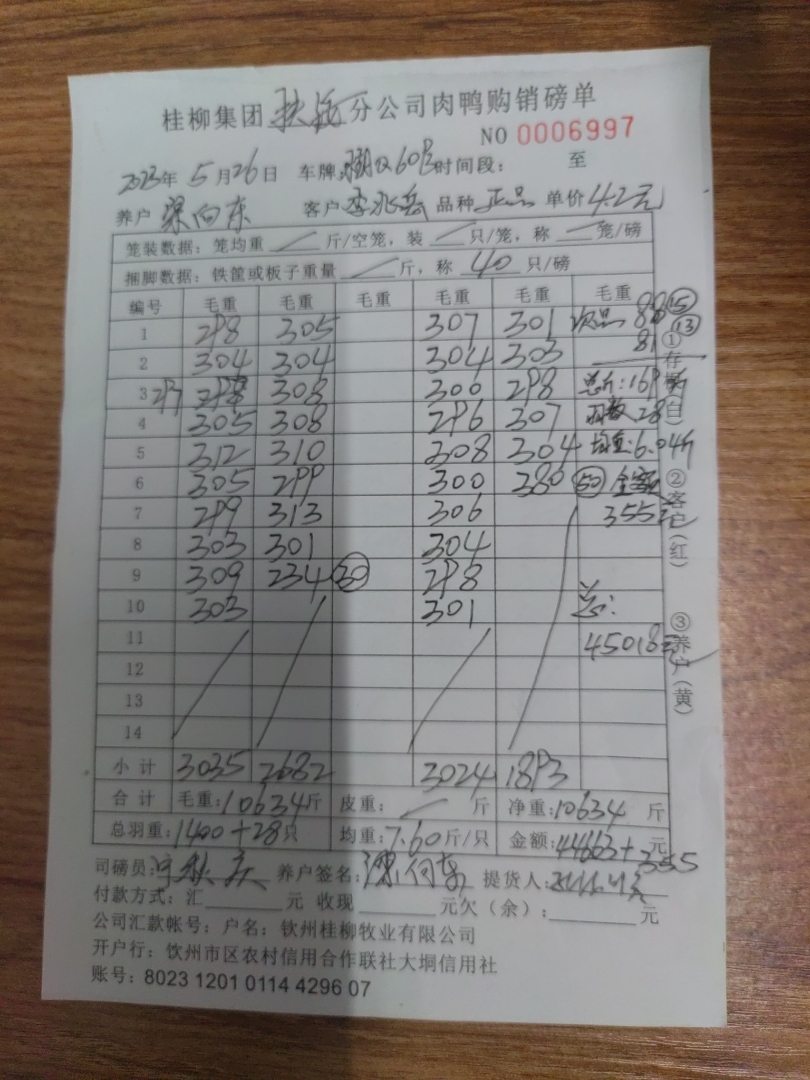 桂柳集团扶绥分公司肉鸭购销磅单
NO 0006997
2023年5月26日 车牌 时间段： 至
养户 梁向东 客户 李兆岳 品种 正品 单价 4.2元
笼装数据：笼均重 / 斤/空笼，装 / 只/笼，称 / 笼/磅
捆脚数据：铁筐或板子重量 / 斤，称 40 只/磅
编号 毛重 毛重 毛重 毛重 毛重 毛重
1 298 305 307 301 次品 88 (15)
2 304 304 304 303 81 (13)
3 297 308 300 298 总斤：169斤
4 305 308 296 307 羽数 28
5 312 310 308 304 均重：6.04斤
6 305 299 300 380 (50) 金额
7 299 313 306 355元
8 303 301 304
9 309 234 (30) 298
10 303 301 总：
11 45018元
12
13
14
小计 3035 2682 3024 1893
合计 毛重：10634斤 皮重： / 斤 净重：10634 斤
总羽重：1400+28只 均重：7.60斤/只 金额：44663+355元
司磅员： 养户签名：梁向东 提货人：
付款方式：汇 元 收现 元欠（余）： 元
公司汇款帐号：户名：钦州桂柳牧业有限公司
开户行：钦州市区农村信用合作联社大垌信用社
账号：8023 1201 0114 4296 07
①存根（白）
②客户（红）
③养户（黄）